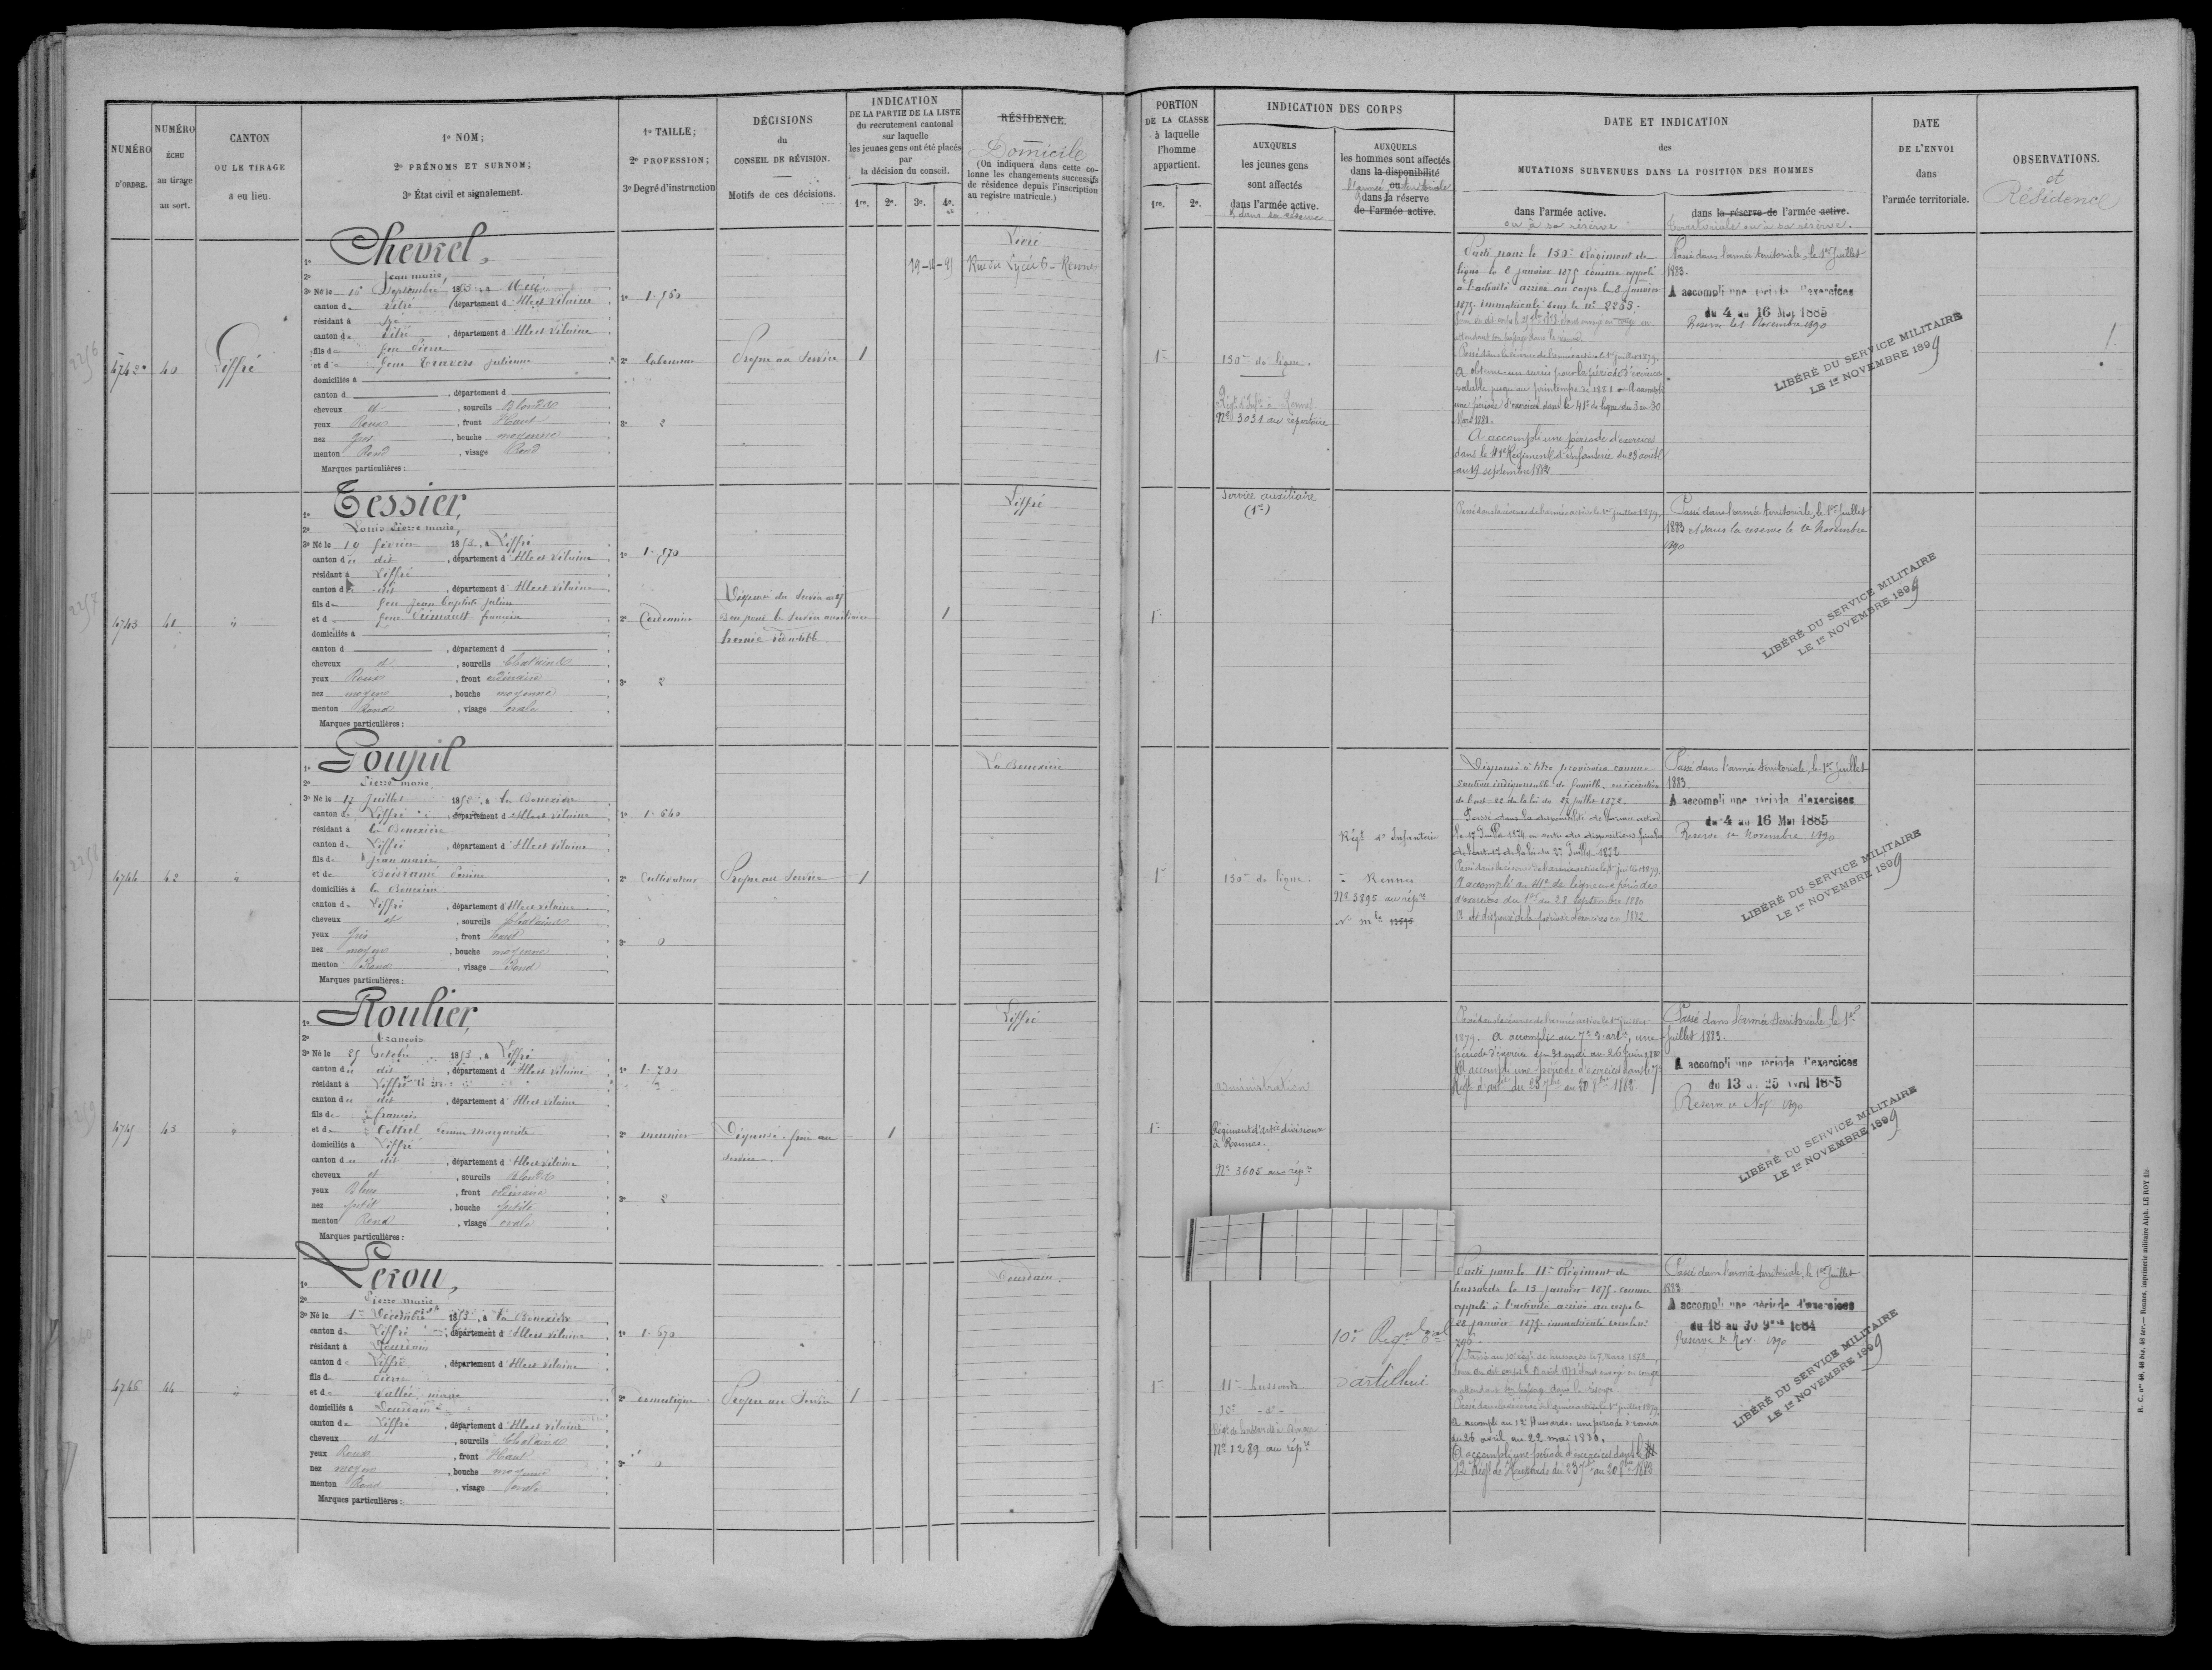 NUMÉRO
D'ORDRE.
NUMÉRO
ÉCHU
au tirage
au sort.
CANTON
OU LE TIRAGE
a eu lieu.
1º NOM;
2º PRÉNOMS ET SURNOM;
3º État civil et signalement.
1º TAILLE;
2º PROFESSION;
3º Degré d'instruction
DÉCISIONS
du
CONSEIL DE RÉVISION.
Motifs de ces décisions.
INDICATION
DE LA PARTIE DE LA LISTE
du recrutement cantonal
sur laquelle
les jeunes gens ont été placés
par
la décision du conseil.
1re. 2e. 3e. 4e.
RÉSIDENCE.
Domicile
(On indiquera dans cette co-
lonne les changements successifs
de résidence depuis l'inscription
au registre matricule.)
PORTION
DE LA CLASSE
à laquelle
l'homme
appartient.
1re. 2e.
INDICATION DES CORPS
AUXQUELS
les jeunes gens
sont affectés
dans l'armée active.
& dans sa réserve
AUXQUELS
les hommes sont affectés
dans la disponibilité
ou
l'armée territoriale
& dans la réserve
de l'armée active.
DATE ET INDICATION
des
MUTATIONS SURVENUES DANS LA POSITION DES HOMMES
dans l'armée active.
ou à sa réserve
dans la réserve de l'armée active.
territoriale ou à sa réserve.
DATE
DE L'ENVOI
dans
l'armée territoriale.
OBSERVATIONS.
et
Résidence
2256
4742
40
Liffré
1º Chevrel,
2º Jean marie,
3º Né le 16 Septembre 1853, à
canton de Vitré département d'Ille et Vilaine
résidant à
canton de Vitré, département d'Ille et Vilaine
fils de feu Pierre
et de feue Travers Julienne
domiciliés à
canton d , département d
cheveux et , sourcils Blonds
yeux Roux , front Haut
nez gros , bouche moyenne
menton Rond , visage Rond
Marques particulières :
1º 1.750
2º laboureur
3º 2
Propre au Service
1
Rue du Lycée 6 - Rennes
1re
130e de ligne.
Régt d'Infie à Rennes
Nº 3031 au répertoire
Parti pour le 130e Régiment de
ligne le 8 janvier 1875 comme appelé
à l'activité arrivé au corps le 8 janvier
1875 immatriculé sous le nº 2253.
Passé dans la réserve de l'armée active le 1er juillet 1879.
A obtenu un sursis pour la période d'exercices
valable jusqu'au printemps de 1881. A accompli
une période d'exercices dans le 41e de ligne du 3 au 30
Mars 1881.
A accompli une période d'exercices
dans le 41e Régiment d'infanterie du 23 août
au 19 septembre 1882
Passé dans l'armée territoriale, le 1er juillet
1883.
A accompli une période d'exercices
du 4 au 16 Mai 1885
Réserve le 1 Novembre 1890
LIBÉRÉ DU SERVICE MILITAIRE
LE 1er NOVEMBRE 1899
2257
4743
41
"
1º Tessier,
2º Louis Pierre marie,
3º Né le 10 février 1853, à Liffré
canton du dit , département d'Ille et Vilaine
résidant à Liffré
canton du dit , département d'Ille et Vilaine
fils de feu Jean Baptiste Julien
et de feue
domiciliés à
canton d , département d
cheveux et , sourcils Chatains
yeux Roux , front ordinaire
nez moyen , bouche moyenne
menton Rond , visage ovale
Marques particulières :
1º 1.570
2º Cordonnier
3º 2
Dispensé du Service actif
bon pour le Service auxiliaire
hernie
1
Liffré
1re
Service auxiliaire
(1re)
Passé dans la réserve de l'armée active le 1er juillet 1879.
Passé dans l'armée territoriale, le 1er juillet
1883 et dans la réserve le 1er Novembre
1890
LIBÉRÉ DU SERVICE MILITAIRE
LE 1er NOVEMBRE 1899
2258
4744
42
"
1º Goupil
2º Pierre marie
3º Né le 17 juillet 1853, à la Bouexière
canton de Liffré , département d'Ille et Vilaine
résidant à la Bouexière
canton de Liffré , département d'Ille et Vilaine
fils de Jean marie
et de
domiciliés à la Bouexière
canton de Liffré , département d'Ille et Vilaine
cheveux et , sourcils Chatains
yeux Gris , front haut
nez moyen , bouche moyenne
menton Rond , visage Rond
Marques particulières :
1º 1.640
2º Cultivateur
3º 0
Propre au Service
1
La Bouexière
1re
130e de ligne.
Régt d'Infanterie
à Rennes
Nº 3895 au répre
Dispensé à titre provisoire comme
soutien indispensable de famille, en exécution
de l'art. 22 de la loi du 27 juillet 1872.
Passé dans la disponibilité de l'armée active
Passé dans la réserve de l'armée active le 1er juillet 1879
A accompli au 41e de ligne une période
d'exercices du 1er au 28 Septembre 1880
A été dispensé de la période d'exercices en 1882
Passé dans l'armée territoriale, le 1er juillet
1883
A accompli une période d'exercices
du 4 au 16 Mai 1885
Réserve le Novembre 1890
LIBÉRÉ DU SERVICE MILITAIRE
LE 1er NOVEMBRE 1899
2259
4745
43
"
1º Roulier,
2º François
3º Né le 25 Octobre 1853, à Liffré
canton du dit , département d'Ille et Vilaine
résidant à Liffré
canton du dit , département d'Ille et Vilaine
fils de François
et de Cottrel Marguerite
domiciliés à Liffré
canton du dit , département d'Ille et Vilaine
cheveux et , sourcils Blonds
yeux Bleus , front ordinaire
nez petit , bouche petite
menton Rond , visage ovale
Marques particulières :
1º 1.700
2º meunier
3º 2
Dispensé. frère au
service.
1
Liffré
1re
administration
Régiment d'artie division
à Rennes.
Nº 3605 au répre
Passé dans la réserve de l'armée active le 1er juillet
1879. A accompli au 7e d'artie, une
période d'exercices du 31 mai au 26 juin 1880
A accompli une période d'exercices dans le 7e
Régt d'artie du 23 7bre au 20 8bre 1882
Passé dans l'armée territoriale, le 1er
juillet 1883.
A accompli une période d'exercices
du 13 au 25 avril 1885
Réserve le Nov. 1890
LIBÉRÉ DU SERVICE MILITAIRE
LE 1er NOVEMBRE 1899
4746
44
"
1º Lerou,
2º Pierre marie
3º Né le 1er Décembre 1853, à la Bouexière
canton de Liffré , département d'Ille et Vilaine
résidant à Dourdain
canton de Liffré , département d'Ille et Vilaine
fils de Pierre
et de Vallée marie
domiciliés à Dourdain
canton de Liffré , département d'Ille et Vilaine
cheveux et , sourcils Chatains
yeux Roux , front Haut
nez moyen , bouche moyenne
menton Rond , visage ovale
Marques particulières :
1º 1.670
2º domestique
3º 0
Propre au Service
1
Dourdain.
1re
11e hussards
10e - do -
Nº 1289 au répre
10e
d'artillerie
Parti pour le 11e Régiment de
hussards le 13 janvier 1875 comme
appelé à l'activité arrivé au corps le
28 janvier 1875 immatriculé sous le nº
Passé dans la réserve de l'armée active le 1er juillet 1879
A accompli au 12e Hussards une période d'exercices
du 26 avril au 22 mai 1880.
A accompli une période d'exercices dans le
12e Régt de Hussards du 23 7bre au 20 8bre 1882
Passé dans l'armée territoriale, le 1er juillet
1883
A accompli une période d'exercices
du 18 au 30 9bre 1884
Réserve le Nov. 1890
LIBÉRÉ DU SERVICE MILITAIRE
LE 1er NOVEMBRE 1899
R. C. nos 46, 46 bis, 46 ter. — Rennes, imprimerie militaire Alph. LE ROY fils